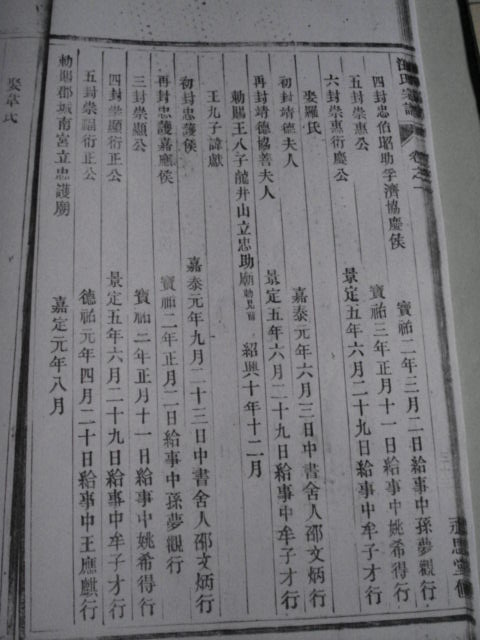 氏宗譜 卷之一
四封忠佑昭助孚濟協慶侯 寶祐二年三月二日給事中孫夢觀行
五封崇惠公 寶祐三年正月十一日給事中姚希得行
六封崇惠衍慶公 景定五年六月二十九日給事中牟子才行
娶羅氏
初封靖德夫人 嘉泰元年六月三日中書舍人邵文炳行
再封靖德協善夫人 景定五年六月二十九日給事中牟子才行
勅賜王八子龍井山立忠助廟 紹興十年十二月
王九子諱獻
初封忠護侯 嘉泰元年九月二十三日中書舍人邵文炳行
再封忠護嘉應侯 寶祐二年正月二日給事中孫夢觀行
三封崇顯公 寶祐二年正月十一日給事中姚希得行
四封崇顯衍正公 景定五年六月二十九日給事中牟子才行
五封崇福衍正公 德祐元年四月二十日給事中王應麒行
勅賜郡城南宮立忠護廟 嘉定元年八月
娶章氏